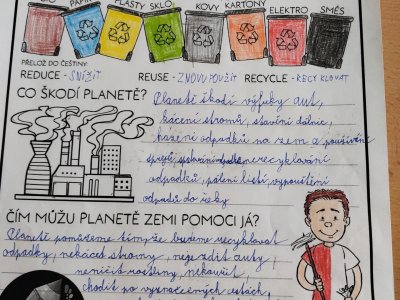 PLASTY SKLO KOVY KARTONY ELEKTRO SMĚS
PŘELOŽ DO ČEŠTINY:
REDUCE - SNÍŽIT REUSE - ZNOVU POUŽÍT RECYCLE - RECYKLOVAT
CO ŠKODÍ PLANETĚ? Planetě škodí výfuky aut,
kácení stromů, stavění dálnic,
házení odpadků na zem a používání
nerecyklování
odpadků, pálení listí, vypouštění
odpadů do řeky
ČÍM MŮŽU PLANETĚ ZEMI POMOCI JÁ?
Planetě pomůžeme tím, že budeme recyklovat
odpadky, nekácet stromy, nejezdit auty,
neničit rostliny, nekouřit,
chodit po vyznačených cestách,